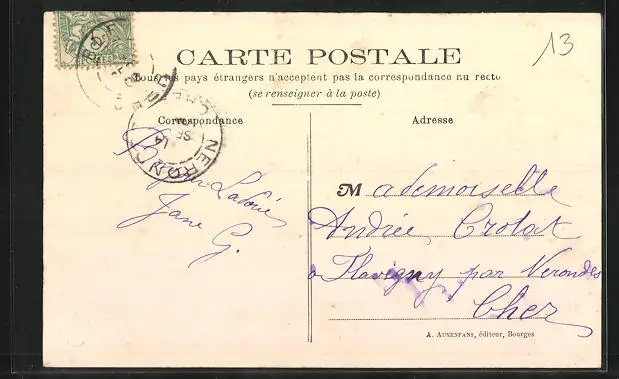 13
CARTE POSTALE
Tous les pays étrangers n'acceptent pas la correspondance au recto
(se renseigner à la poste)
Correspondance
Adresse
NERONDES
Jane G.
Mademoiselle
Andrée Crotat
a Flavigny par Nerondes
Cher
A. AUXENFANS, éditeur, Bourges